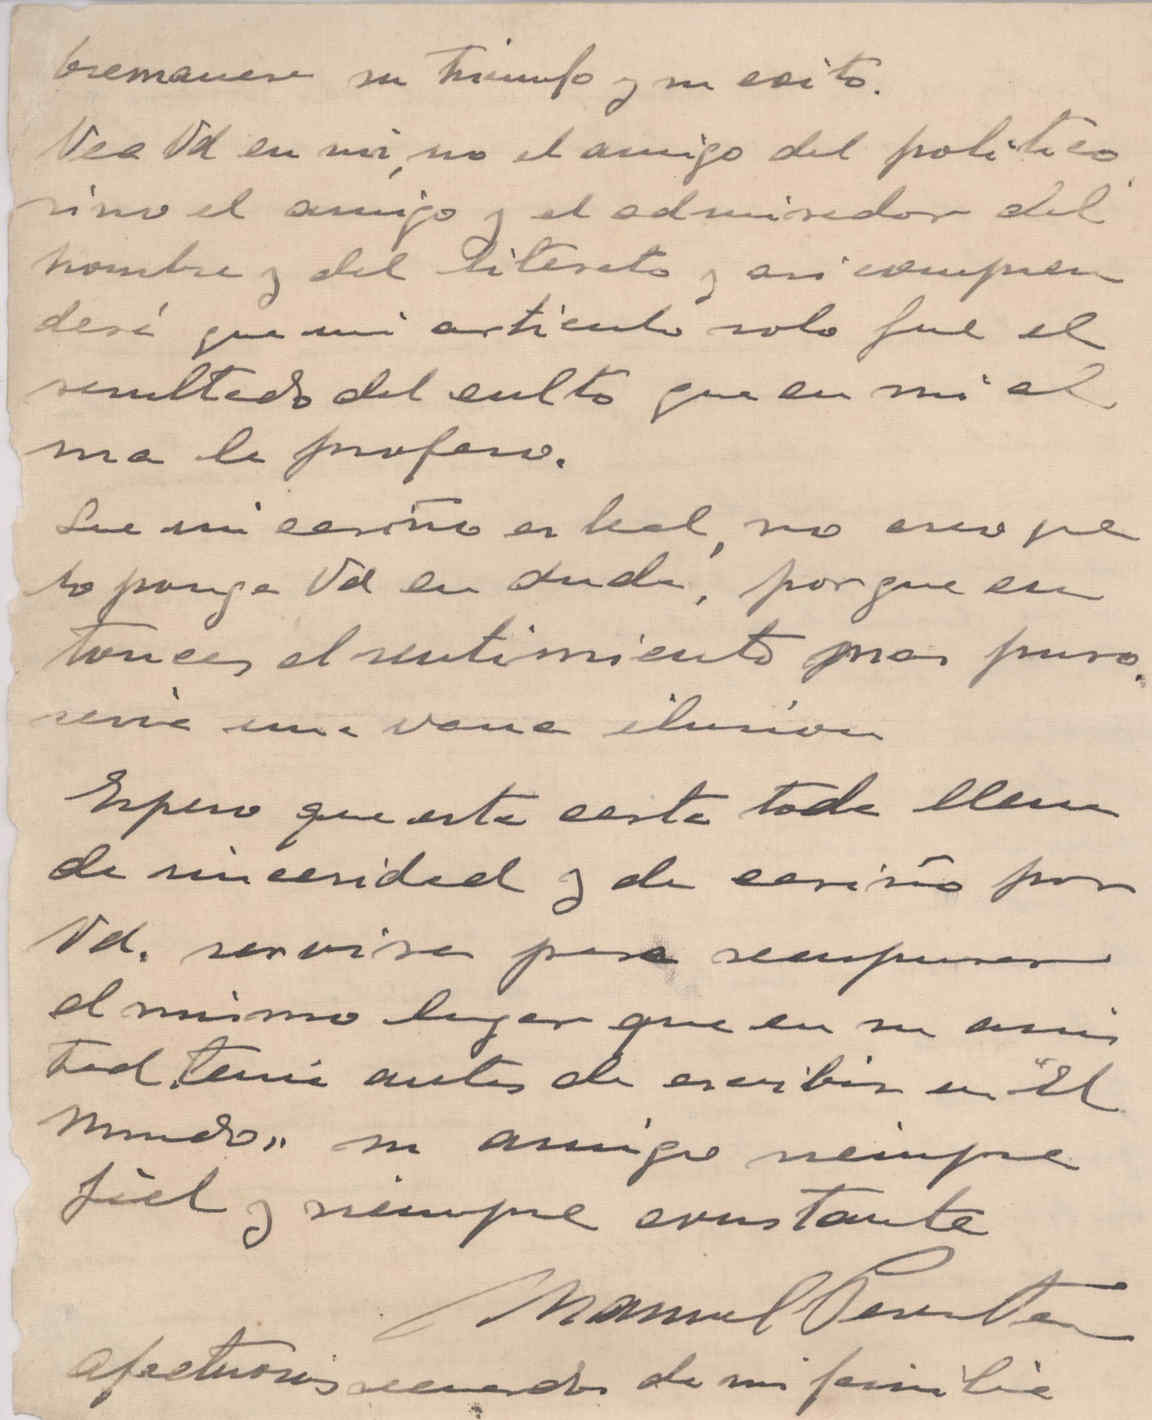 bremanera su triunfo y su exito.
Vea Vd en mi, no el amigo del politico,
sino el amigo y el admirador del
hombre y del literato y asi compren
derá que mi articulo solo fue el
resultado del culto que en mi al
ma le profeso.
Que mi cariño es leal, no creo que
lo ponga Vd en duda, porque en
tonces el sentimiento mas puro,
seria una vana ilusion
Espero que esta carta toda llena
de sinceridad y de cariño por
Vd. servira para
el mismo lugar que en su amis
tad, tenia antes de escribir en "El
Mundo" su amigo siempre
fiel y siempre constante
Manuel
Afectuosos recuerdos de mi familia